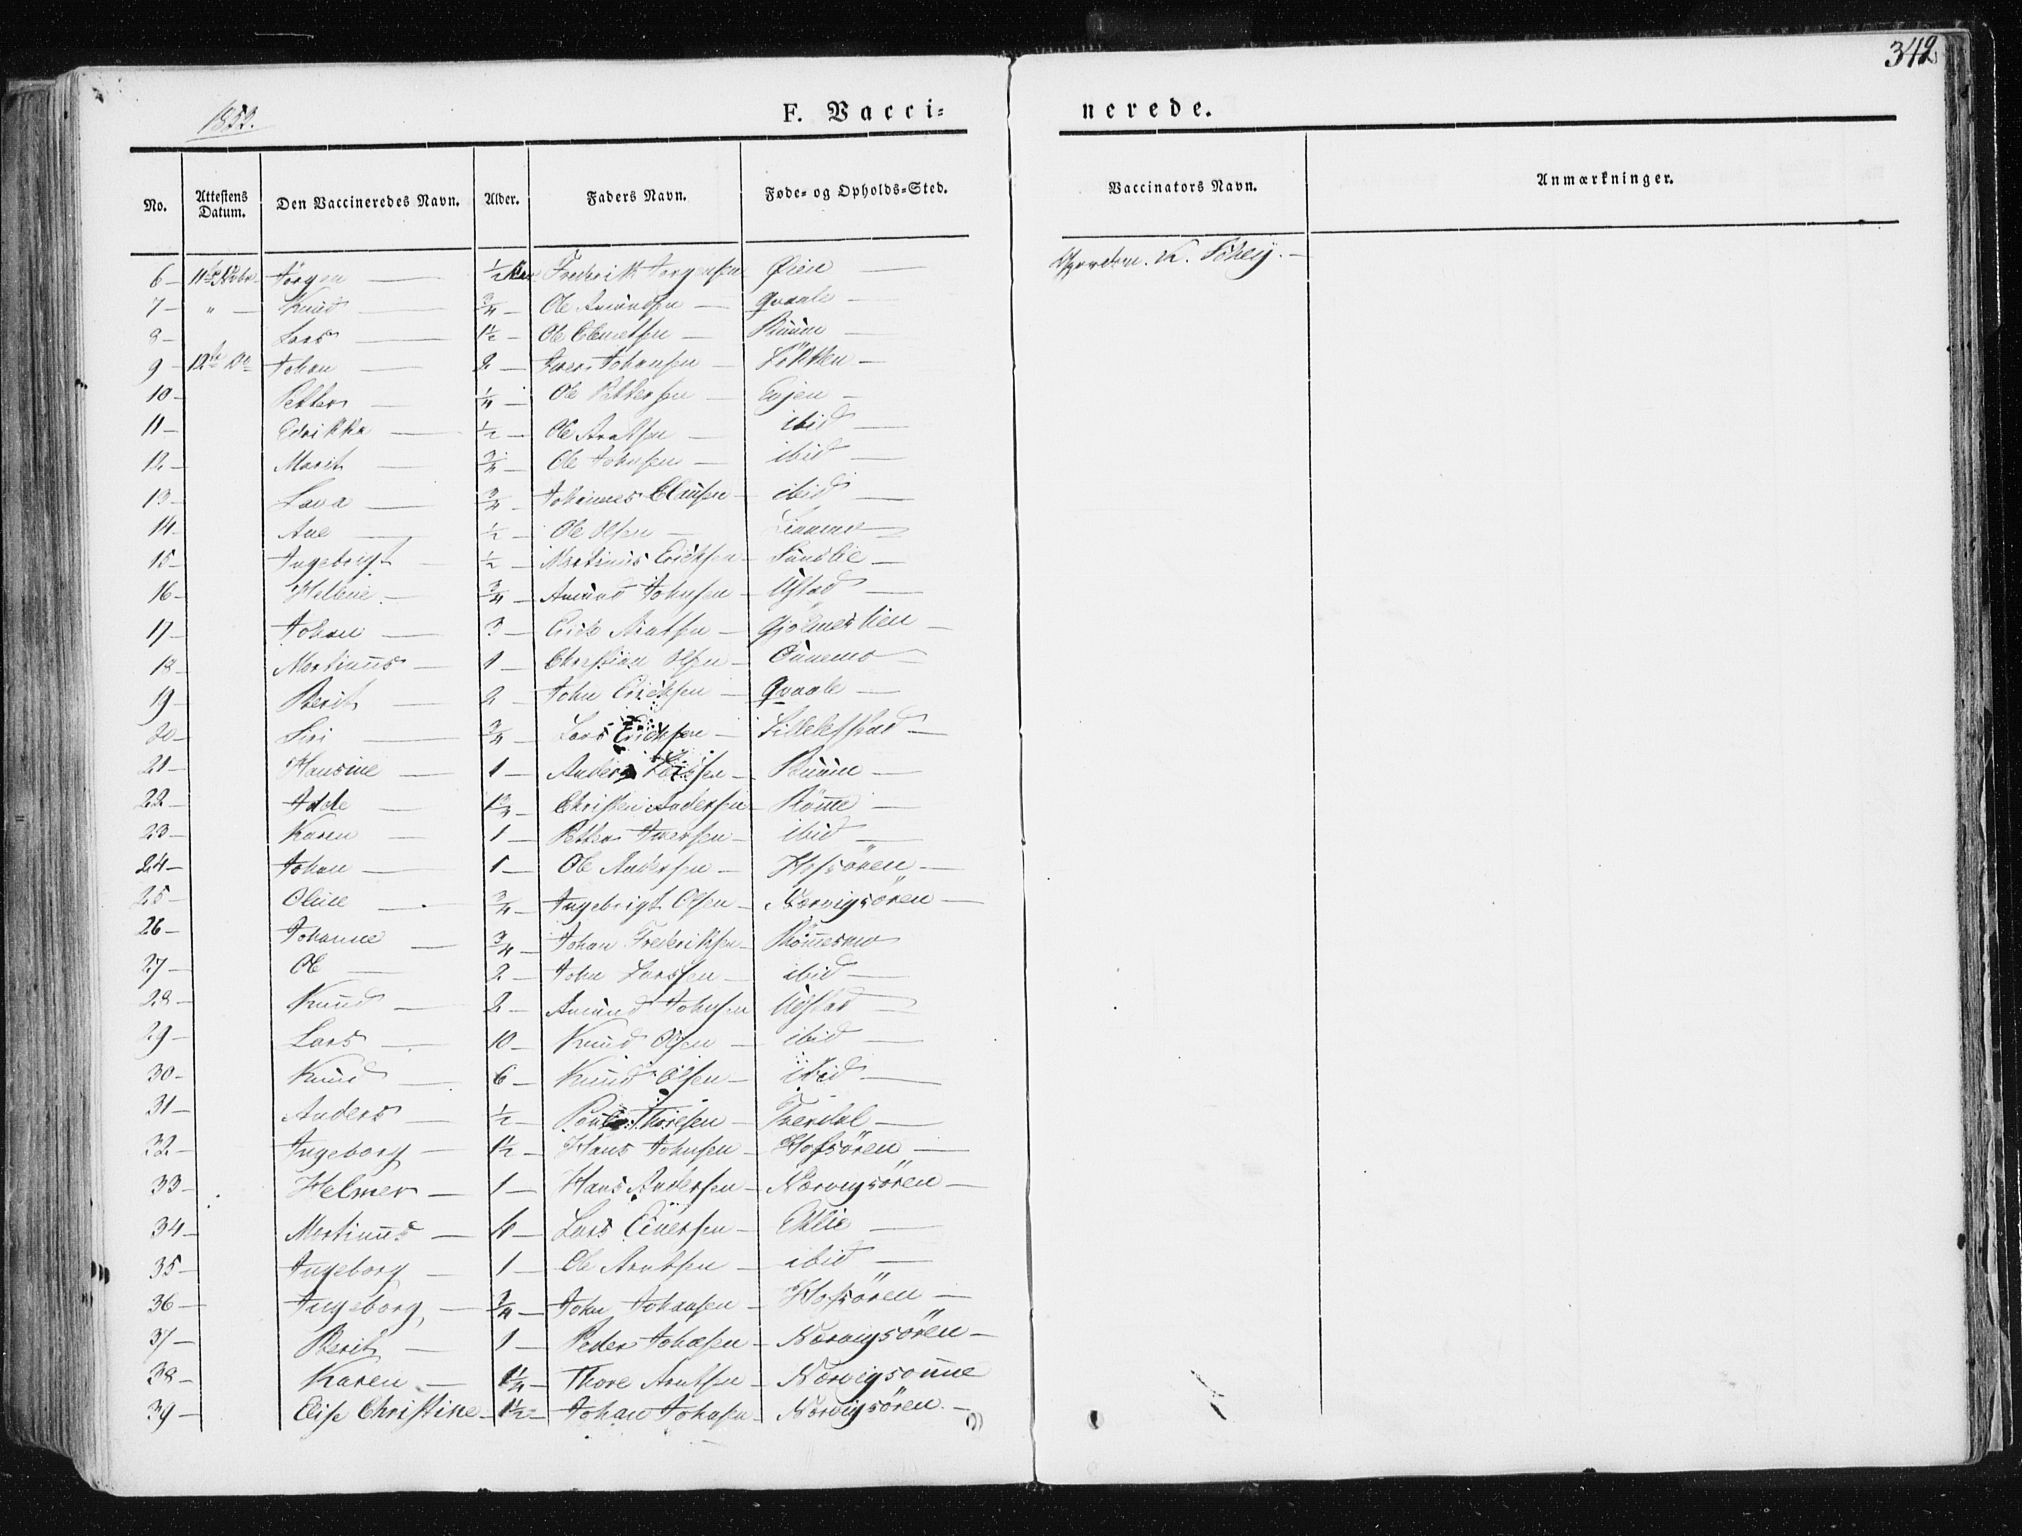 342
1853.
F. Vaccinerede.
No. Attestens Datum. Den Vaccineredes Navn. Alder. Faders Navn. Føde- og Opholds-Sted. Vaccinators Navn. Anmærkninger.
6 Jørgen ½ Frederik Jørgensen Øien
7 " Knud ¾ Ole Amundsen Qvaale
8 Lars 1½ Ole Clemetsen Ruum
9 12te Johan 2 Iver Johansen Løkken
10 Petter ¼ Ole Pettersen Evjen
11 Edrikka ½ Ole Arntsen ibid
12 Marit ¾ Ole Johnsen ibid
13 Lava ¾ Johannes Clausen ibid
14 Ane ½ Ole Olsen
15 Ingebrigt ½ Martinus Ericksen Sundlie
16 Hellene ¾ Amund Johnsen Ustad
17 Johan 3 Erick Arntsen Gjølmeslien
18 Martinus 1 Christian Olsen
19 Berit 2 John Ericksen Qvaale
20 Siri ¾ Lars Ericksen
21 Hansine 1 Anders Larsen Ruum
22 Christen Andersen Rømme
23 Karen 1 Petter Iversen ibid
24 Johan 1 Ole Andersen Hofsøren
25 Oline ¾ Ingebrigt Olsen Norvigsøren
26 Johanne ¾ Johan Frederiksen Rømmesmo
27 Ole 2 John Larssen ibid
28 Knud 2 Amund Johnsen Uestad
29 Lars 10 Knud Olsen ibid
30 Knud 6 Knud Olsen ibid
31 Anders ½ Thoresen Tverdal
32 Ingeborg 1½ Hans Johnsen Hofsøren
33 Helmer 1 Hans Andersen Norvigsøren
34 Martinus 4 Lars Einersen Ethlie
35 Ingeborg 1 Ole Arntsen ibid
36 Ingeborg ¾ John Johansen Hofsøren
37 Berit 1 Peder Johnsen Norvigsøren
38 Karen 1¼ Thore Arntsen
39 Elise Christine 1½ Johan Johnsen Norvigsøren